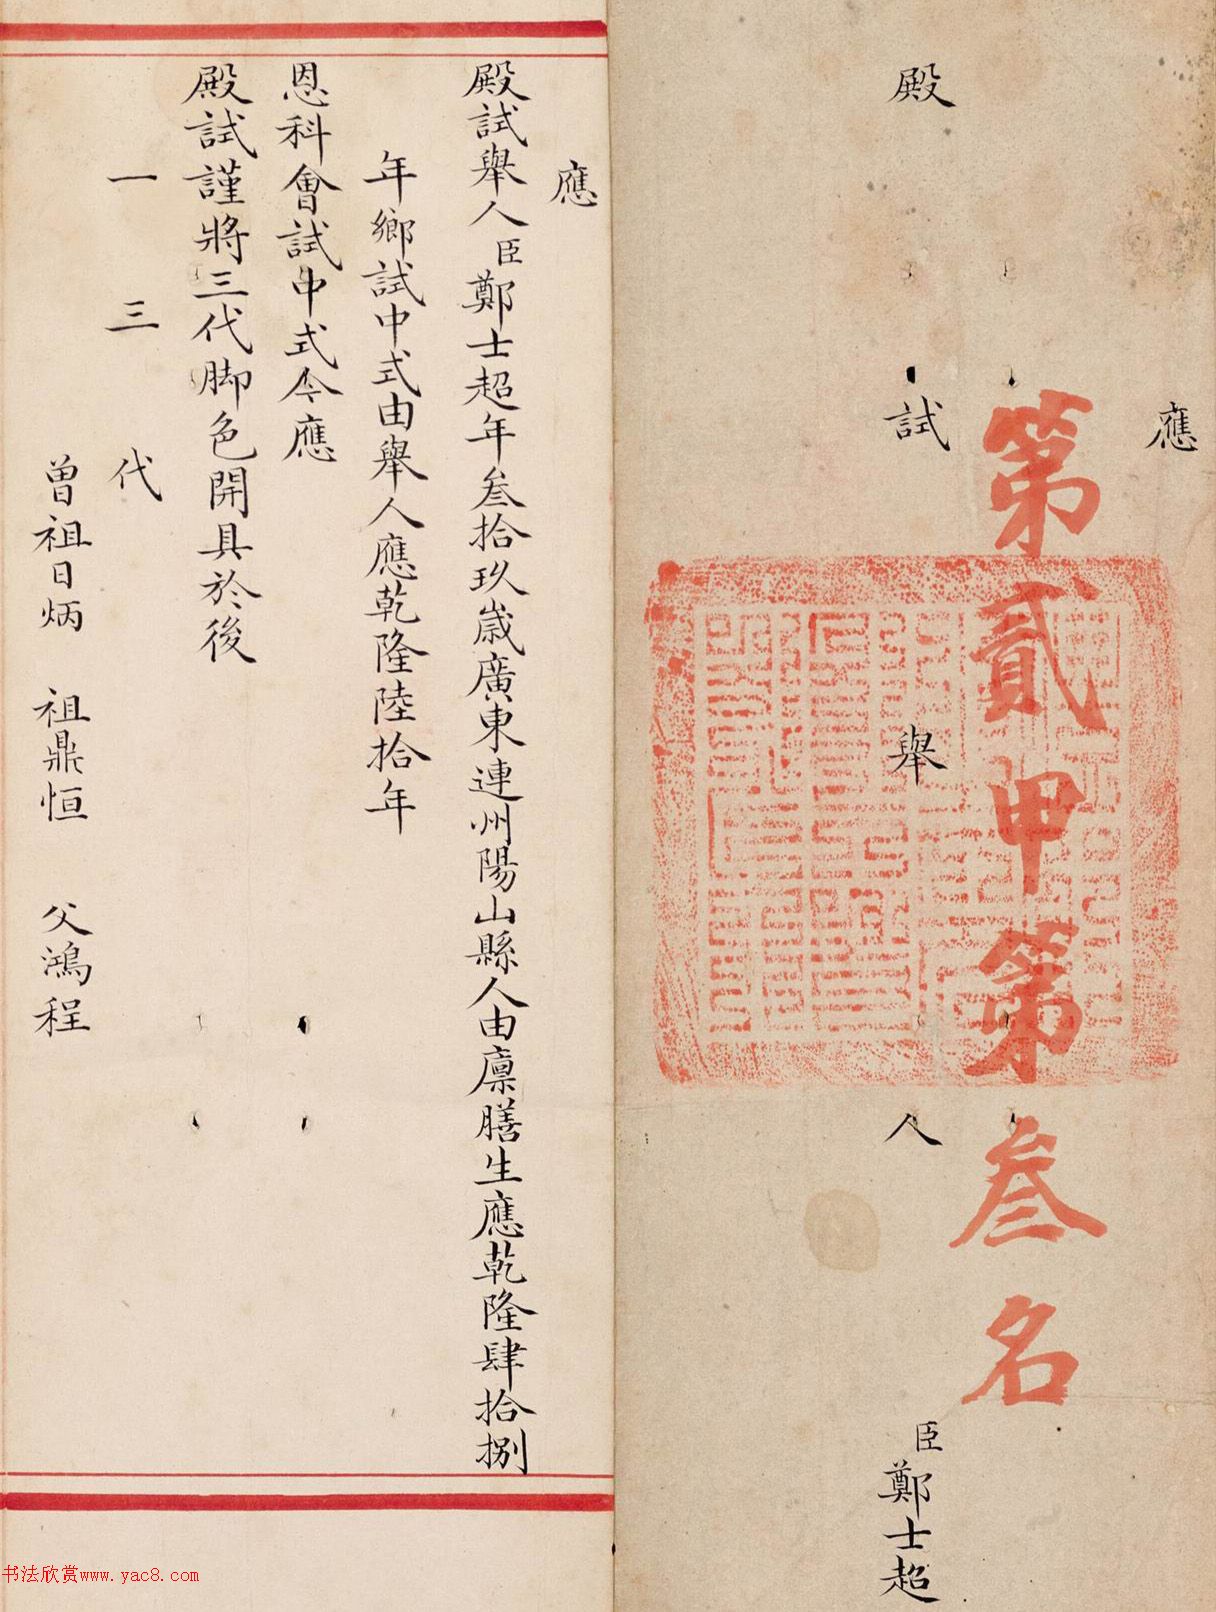 應
第貳甲第叁名
殿試舉人臣鄭士超
應
殿試舉人臣鄭士超年叁拾玖歲廣東連州陽山縣人由廩膳生應乾隆肆拾捌
年鄉試中式由舉人應乾隆陸拾年
恩科會試中式今應
殿試謹將三代脚色開具於後
一三代
曾祖日炳 祖鼎恒 父鴻程
书法欣赏www.yac8.com